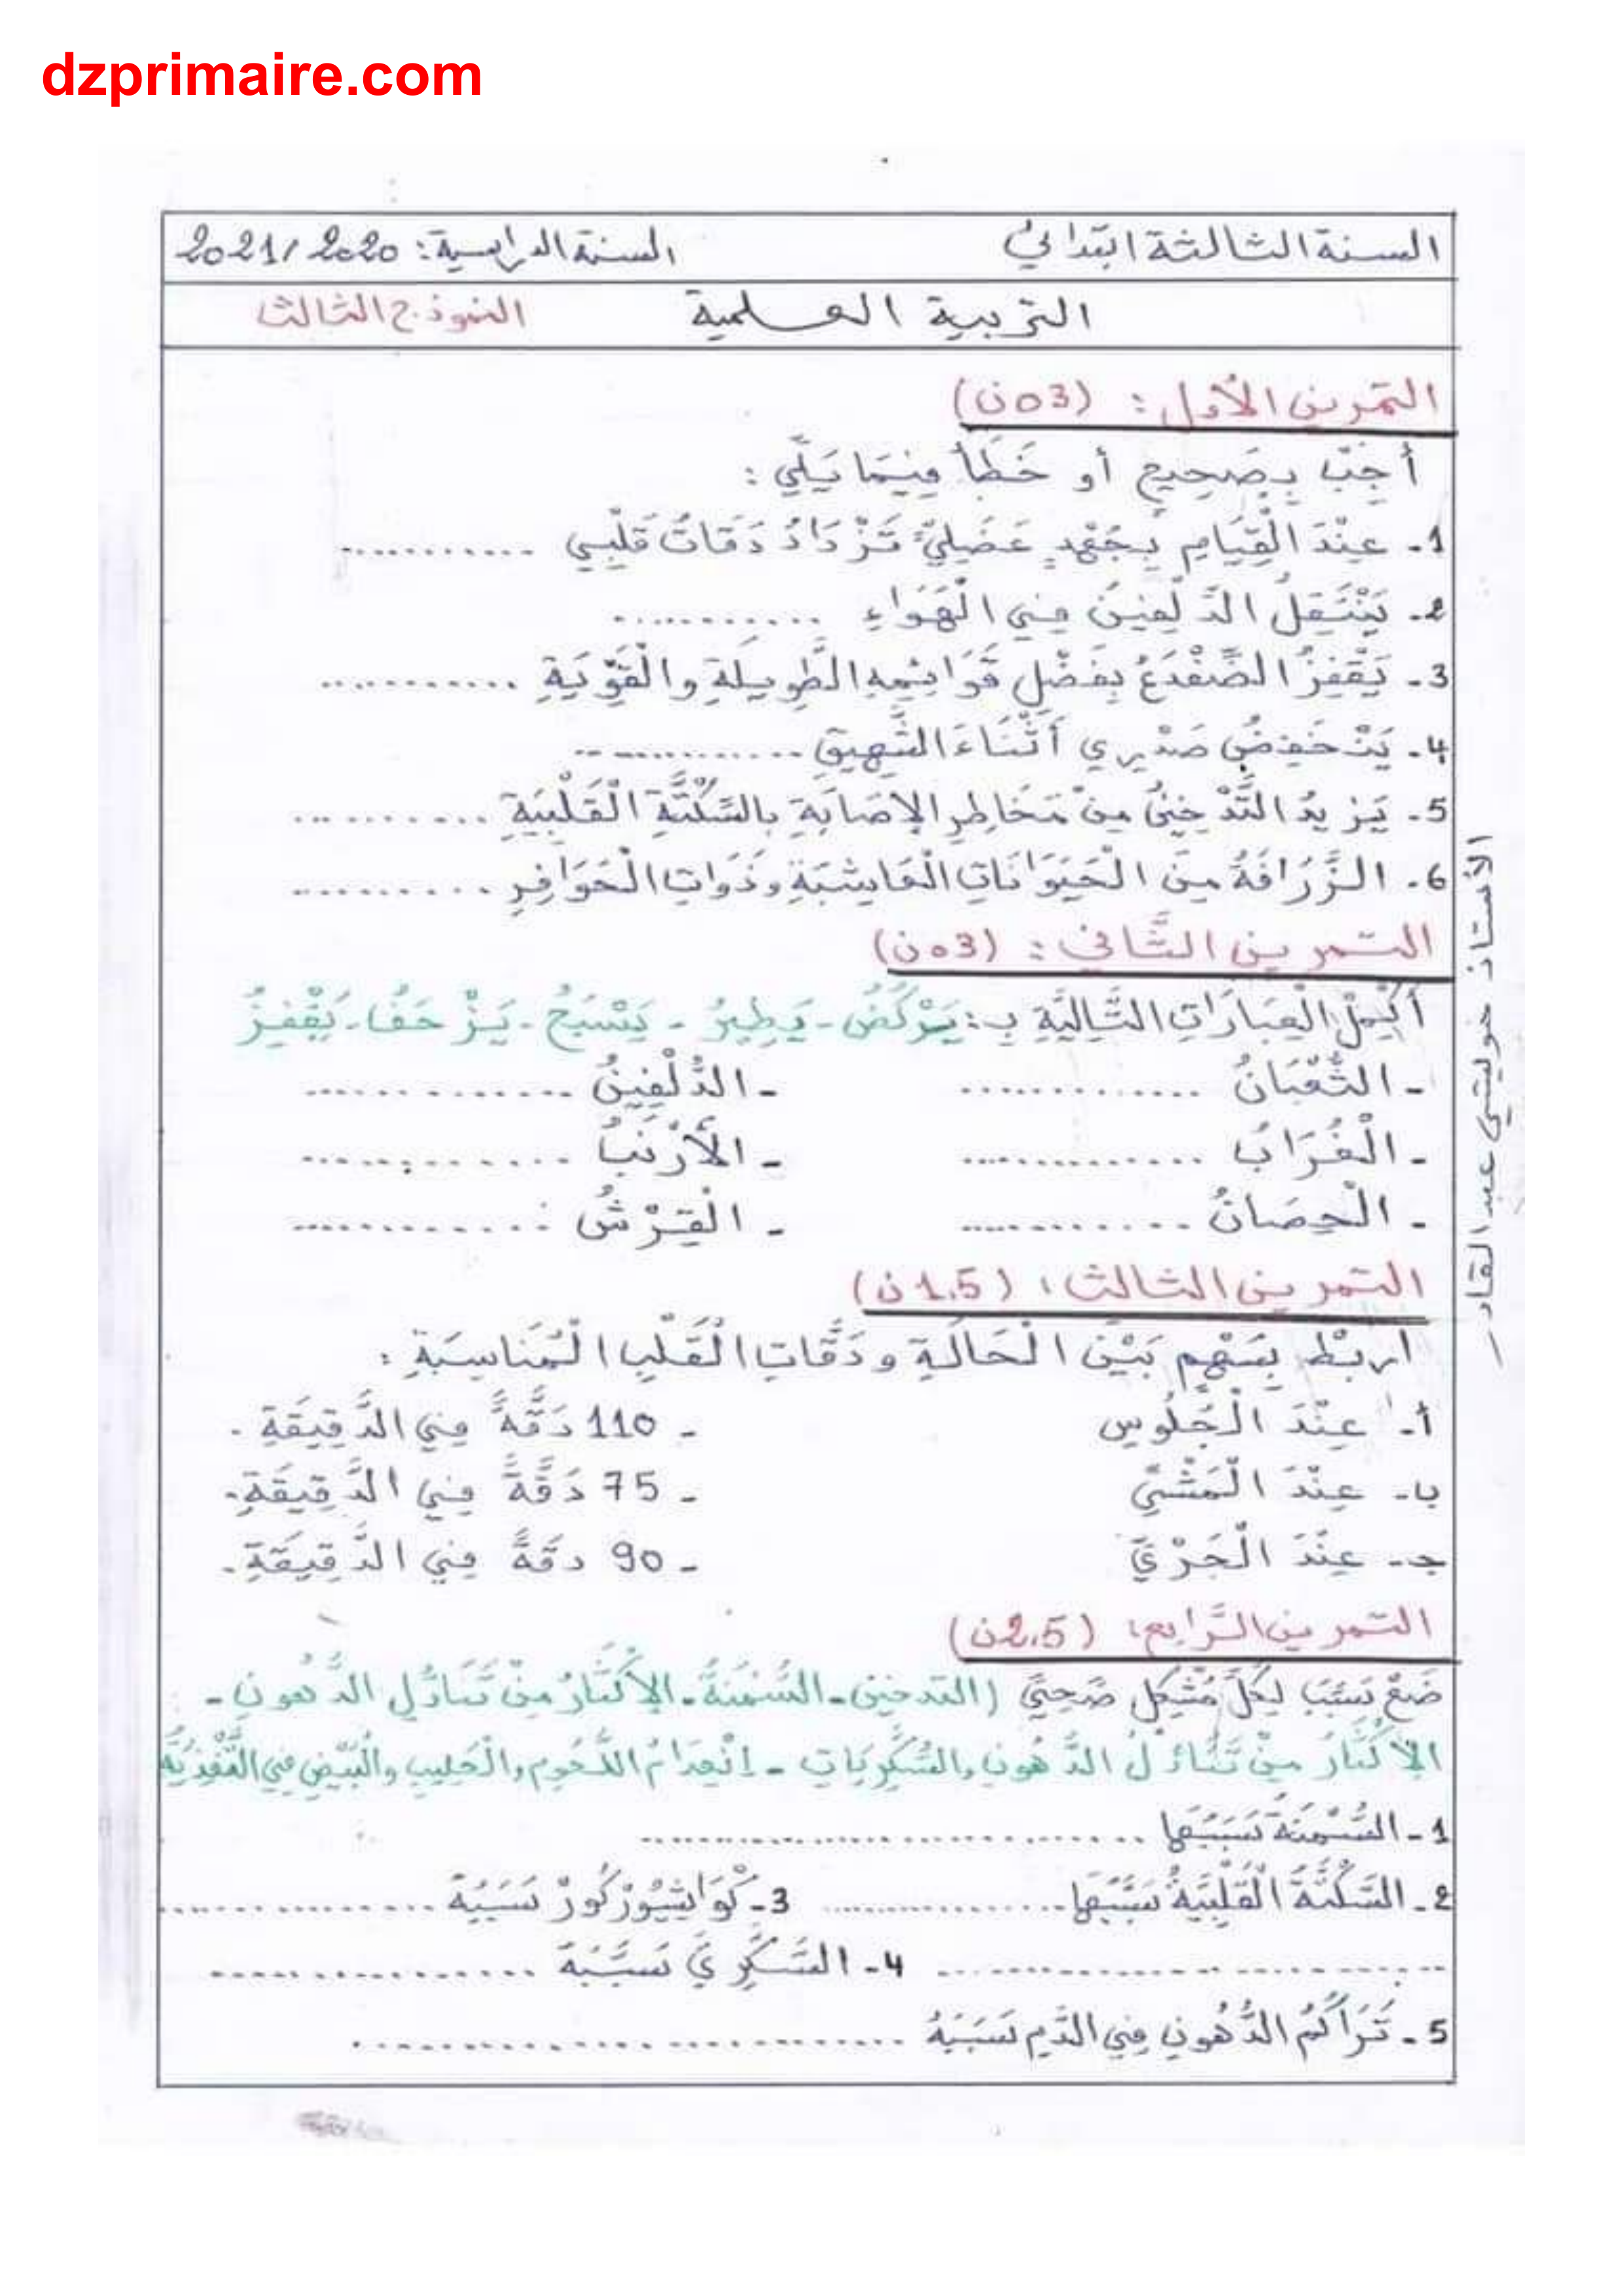 dzprimaire.com
السنة الثالثة ابتدائي السنة الدراسية: 2021/2020
التربية العلمية النموذج الثالث
التمرين الأول: (03ن)
أَجِبْ بِصَحِيحٍ أو خَطَأ فِيمَا يَلِي:
1- عِنْدَ الْقِيَامِ بِجُهْدٍ عَضَلِيٍّ تَزْدَادُ دَقَاتُ قَلْبِي ............
2- يَنْتَقِلُ الدَّلْفِينُ فِي الْهَوَاءِ ............
3- يَقْفِزُ الضِّفْدَعُ بِفَضْلِ قَوَائِمِهِ الطَّوِيلَةِ والْقَوِّيَةِ ............
4- يَنْخَفِضُ صَدْرِي أَثْنَاءَ الشَّهِيقِ ............
5- يَزِيدُ التَّدْخِينُ مِنْ مَخَاطِرِ الإصَابَةِ بالسَّكْتَّةِ الْقَلْبِيَةِ ............
6- الزَّرَافَةُ مِنَ الْحَيَوَانَاتِ الْعَاشِبَةِ وذَوَاتِ الْحَوَافِرِ ............
التمرين الثَّاني: (03ن)
أَكْمِلْ الْعِبَارَاتِ التَّالِيَّةِ بـ: يَرْكُضُ - يَطِيرُ - يَسْبَحُ - يَزْحَفُ - يَقْفِزُ
- الثُّعْبَانُ ............ - الدُّلْفِينُ ............
- الْغُرَابُ ............ - الأَرْنَبُ ............
- الْحِصَانُ ............ - الْقِرْشُ ............
التمرين الثالث: (1.5ن)
اربِطْ بِسَهْمٍ بَيْنَ الْحَالَةِ ودَقَّاتِ الْقَلْبِ الْمُنَاسِبَةِ:
أ- عِنْدَ الْجُلُوسِ - 110 دَقَّةً فِي الدَّقِيقَةِ.
ب- عِنْدَ الْمَشْيِّ - 75 دَقَّةً فِي الدَّقِيقَةِ.
جـ- عِنْدَ الْجَرْيِّ - 90 دقَةً فِي الدَّقِيقَةِ.
التمرين الرَّابع: (2.5ن)
ضَعْ سَبَبَ لِكُلِّ مُشْكِلٍ صَحِيٍّ (التدخين - السُّمْنَةُ - الإكْثَارُ مِنْ تَنَاوُلِ الدُّهونِ -
الإكْثَارُ مِنْ تَنَاوُلُ الدُّهُونِ والسُّكَّرِيَاتِ - اِنْعِدَامُ اللُّحُومِ والْحَلِيبِ والْبَيْضِ فِي التَّغْذِيَّةِ
1- السُّمْنَةُ سَبَبُهَا ............
2- السَّكْتَّةُ الْقَلْبِيَةُ سَبَبُهَا ............ 3- كْوَاشْيُورْكُورْ سَبَبُهُ ............
............ 4- السُّكَّرِيُّ سَبَبُهُ ............
5- تَرَاكُمُ الدُّهُونِ فِي الدَّمِ سَبَبُهُ ............
الأستاذ خوليتي عبد القادر